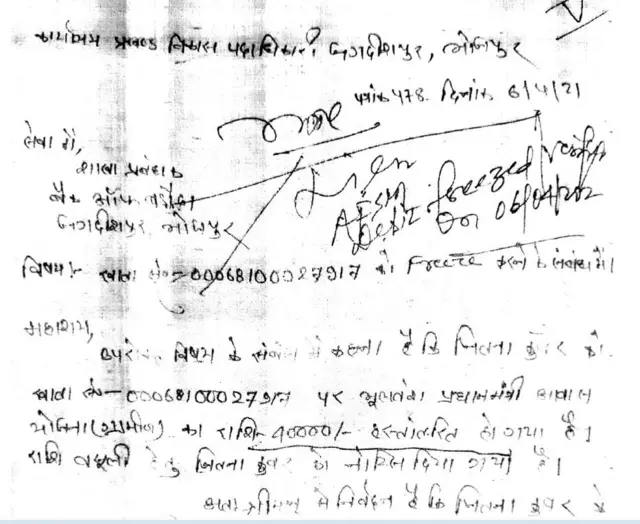 कार्यालय प्रखण्ड विकास पदाधिकारी जगदीशपुर, भोजपुर
पत्रांक 478 दिनांक 6/4/21
सेवा में,
शाखा प्रबंधक
बैंक ऑफ बड़ौदा
जगदीशपुर, भोजपुर
Debit freezed
On 06/04/202
विषय:- खाता सं०- 00068100027917 को Freeze करने के संबंध में।
महाशय,
उपरोक्त विषय के संबंध में कहना है कि जितना कुंवर को
खाता सं०- 00068100027917 पर भूलवश प्रधानमंत्री आवास
योजना (ग्रामीण) का राशि- 40000/- हस्तांतरित हो गया है।
राशि वसूली हेतु जितना कुंवर को नोटिस दिया गया है।
अतः श्रीमान् से निवेदन है कि जितना कुंवर के